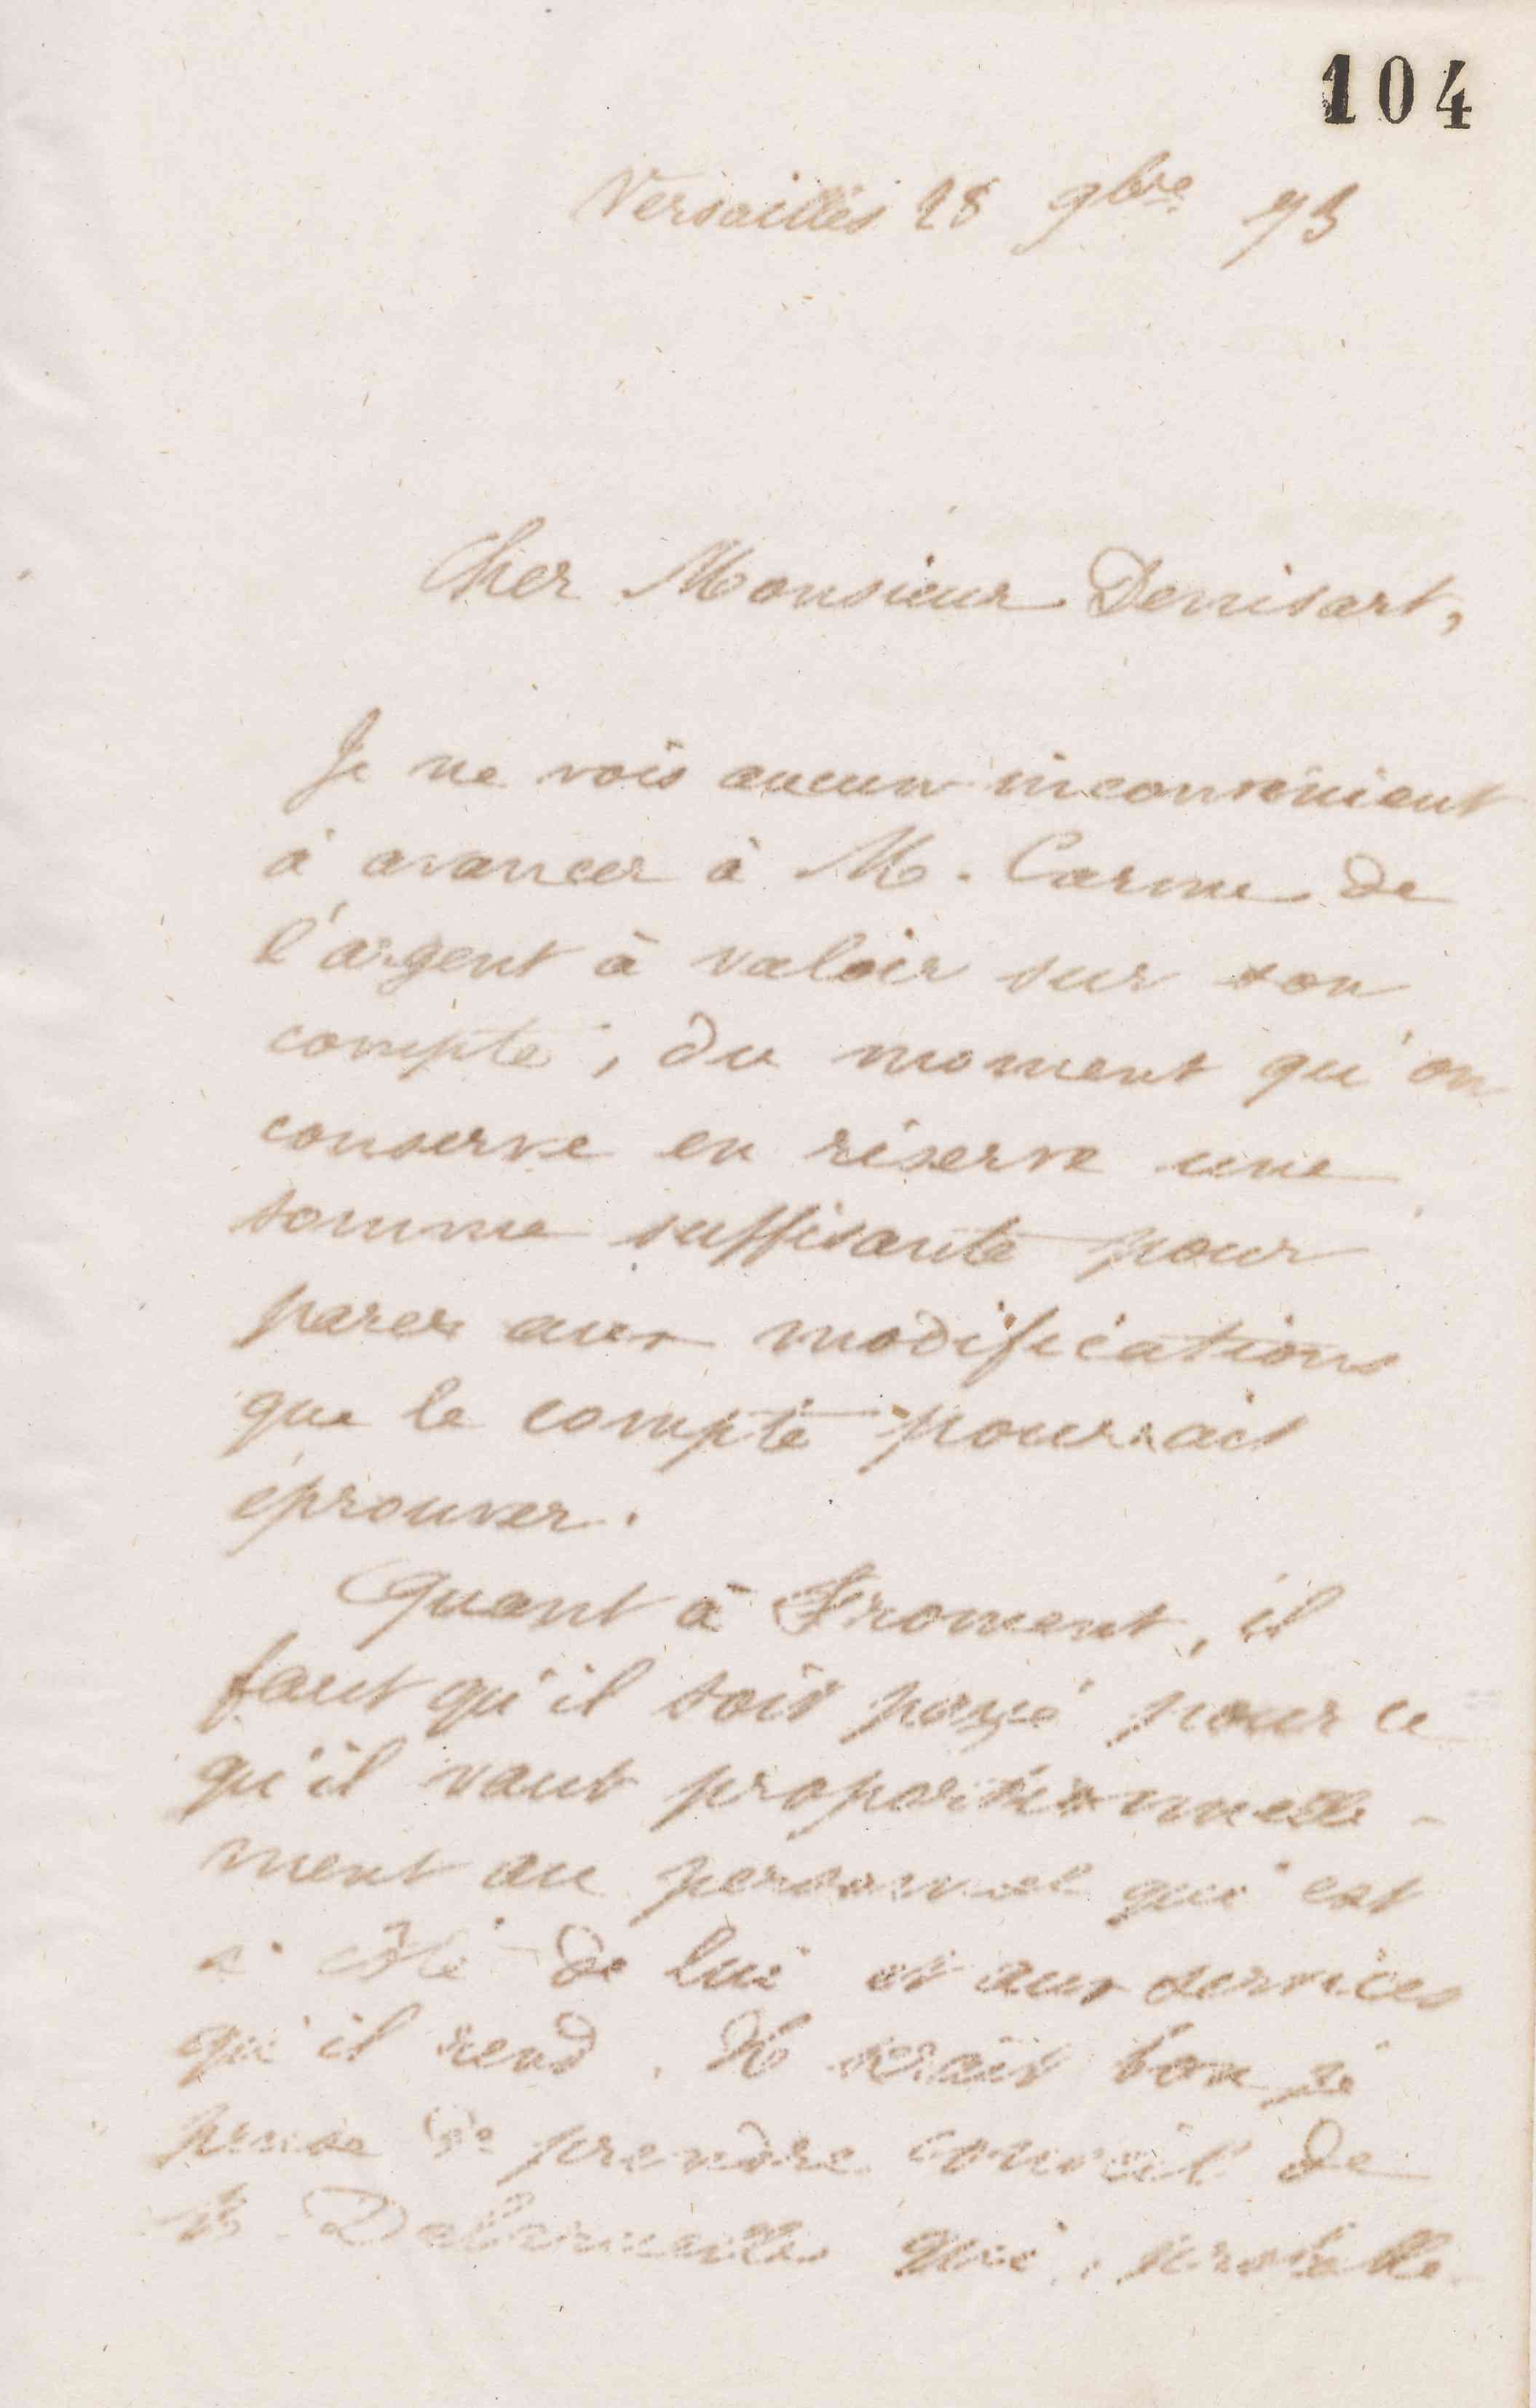 104
Versailles 28 9bre 73
Cher Monsieur Denisart,
Je ne vois aucun inconvénient
à avancer à M. Carme de
l'argent à valoir sur son
compte, du moment qu'on
conserve en réserve une
somme suffisante pour
parer aux modifications
que le compte pourrait
éprouver.
Quant à Froment, il
faut qu'il soit payé pour ce
qu'il vaut proportionnelle-
ment au personnel qui est
à côté de lui et aux services
qu'il rend. Il serait bon je
pense de prendre conseil de
M. qui, probable-